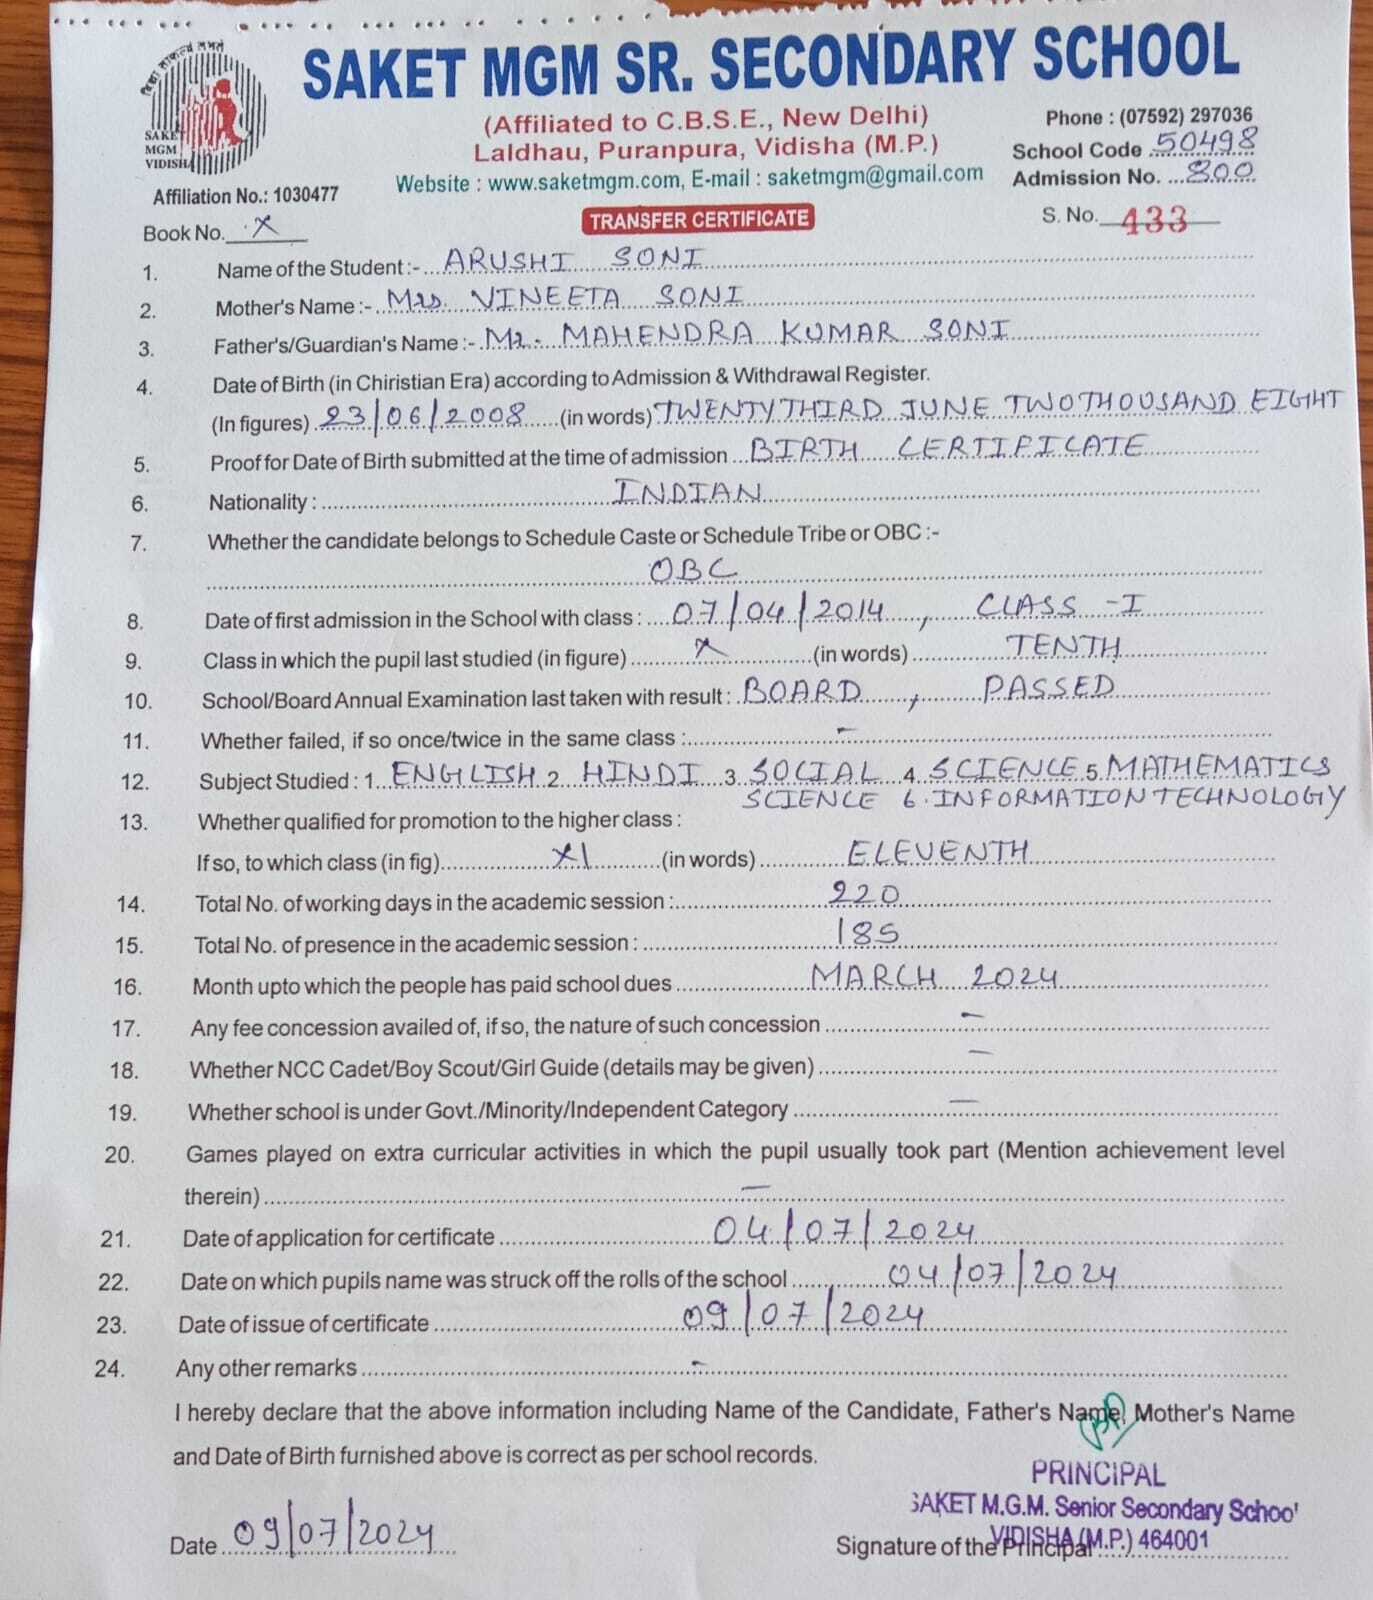 SAKET MGM SR. SECONDARY SCHOOL
(Affiliated to C.B.S.E., New Delhi)
Laldhau, Puranpura, Vidisha (M.P.)
Website : www.saketmgm.com, E-mail : saketmgm@gmail.com
Phone : (07592) 297036
School Code 50498
Admission No. 800
SAKET
MGM
VIDISHA
Affiliation No.: 1030477
Book No. X
TRANSFER CERTIFICATE
S. No. 433
1. Name of the Student :- ARUSHI SONI
2. Mother's Name :- Mrs. VINEETA SONI
3. Father's/Guardian's Name :- Mr. MAHENDRA KUMAR SONI
4. Date of Birth (in Chiristian Era) according to Admission & Withdrawal Register.
(In figures) 23/06/2008 (in words) TWENTY THIRD JUNE TWO THOUSAND EIGHT
5. Proof for Date of Birth submitted at the time of admission BIRTH CERTIFICATE
6. Nationality : INDIAN
7. Whether the candidate belongs to Schedule Caste or Schedule Tribe or OBC :-
OBC
8. Date of first admission in the School with class : 07/04/2014, CLASS - I
9. Class in which the pupil last studied (in figure) X (in words) TENTH
10. School/Board Annual Examination last taken with result : BOARD, PASSED
11. Whether failed, if so once/twice in the same class : -
12. Subject Studied : 1. ENGLISH 2. HINDI 3. SOCIAL 4. SCIENCE 5. MATHEMATICS
SCIENCE 6. INFORMATION TECHNOLOGY
13. Whether qualified for promotion to the higher class :
If so, to which class (in fig) XI (in words) ELEVENTH
14. Total No. of working days in the academic session : 220
15. Total No. of presence in the academic session : 185
16. Month upto which the people has paid school dues MARCH 2024
17. Any fee concession availed of, if so, the nature of such concession -
18. Whether NCC Cadet/Boy Scout/Girl Guide (details may be given) -
19. Whether school is under Govt./Minority/Independent Category -
20. Games played on extra curricular activities in which the pupil usually took part (Mention achievement level
therein) -
21. Date of application for certificate 04/07/2024
22. Date on which pupils name was struck off the rolls of the school 04/07/2024
23. Date of issue of certificate 09/07/2024
24. Any other remarks -
I hereby declare that the above information including Name of the Candidate, Father's Name, Mother's Name
and Date of Birth furnished above is correct as per school records.
PRINCIPAL
SAKET M.G.M. Senior Secondary School
VIDISHA (M.P.) 464001
Date 09/07/2024
Signature of the Principal